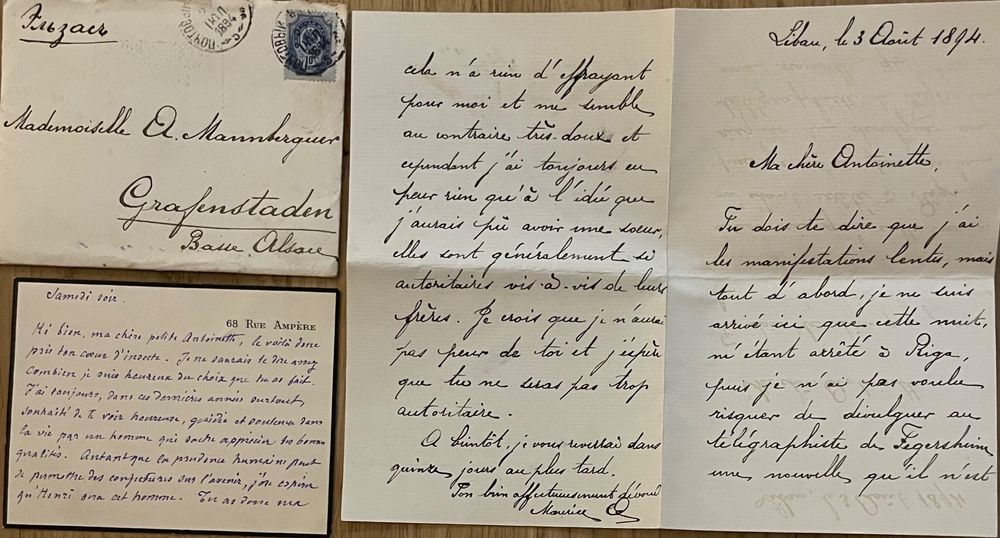 Эльзасъ
Mademoiselle A. Mannberguer
Grafenstaden
Basse Alsace
Samedi soir.
68 Rue Ampère
Hé bien, ma chère petite Antoinette, le voilà donc
pris ton cœur d'insecte. Je ne saurais te dire assez
combien je suis heureux du choix que tu as fait.
J'ai toujours, dans ces dernières années surtout,
souhaité de te voir heureuse, guidée et soutenue dans
la vie par un homme qui sache apprécier tes bonnes
qualités. Autant que la prudence humaine peut
se permettre des conjectures sur l'avenir, j'ose espérer
qu'Henri sera cet homme. Tu as donc ma
cela n'a rien d'effrayant
pour moi et me semble
au contraire très-doux et
cependant j'ai toujours eu
peur rien qu'à l'idée que
j'aurais pû avoir une soeur,
elles sont généralement si
autoritaires vis-à-vis de leurs
frères. Je crois que je n'aurai
pas peur de toi et j'espère
que tu ne seras pas trop
autoritaire.
A bientôt, je vous reverrai dans
quinze jours au plus tard.
Ton bien affectueusement dévoué
Maurice
Libau, le 3 Août 1894.
Ma chère Antoinette,
Tu dois te dire que j'ai
les manifestations lentes, mais
tout d'abord, je ne suis
arrivé ici que cette nuit,
m'étant arrêté à Riga,
puis je n'ai pas voulu
risquer de divulguer au
télégraphiste de Fegersheim
une nouvelle qu'il n'est